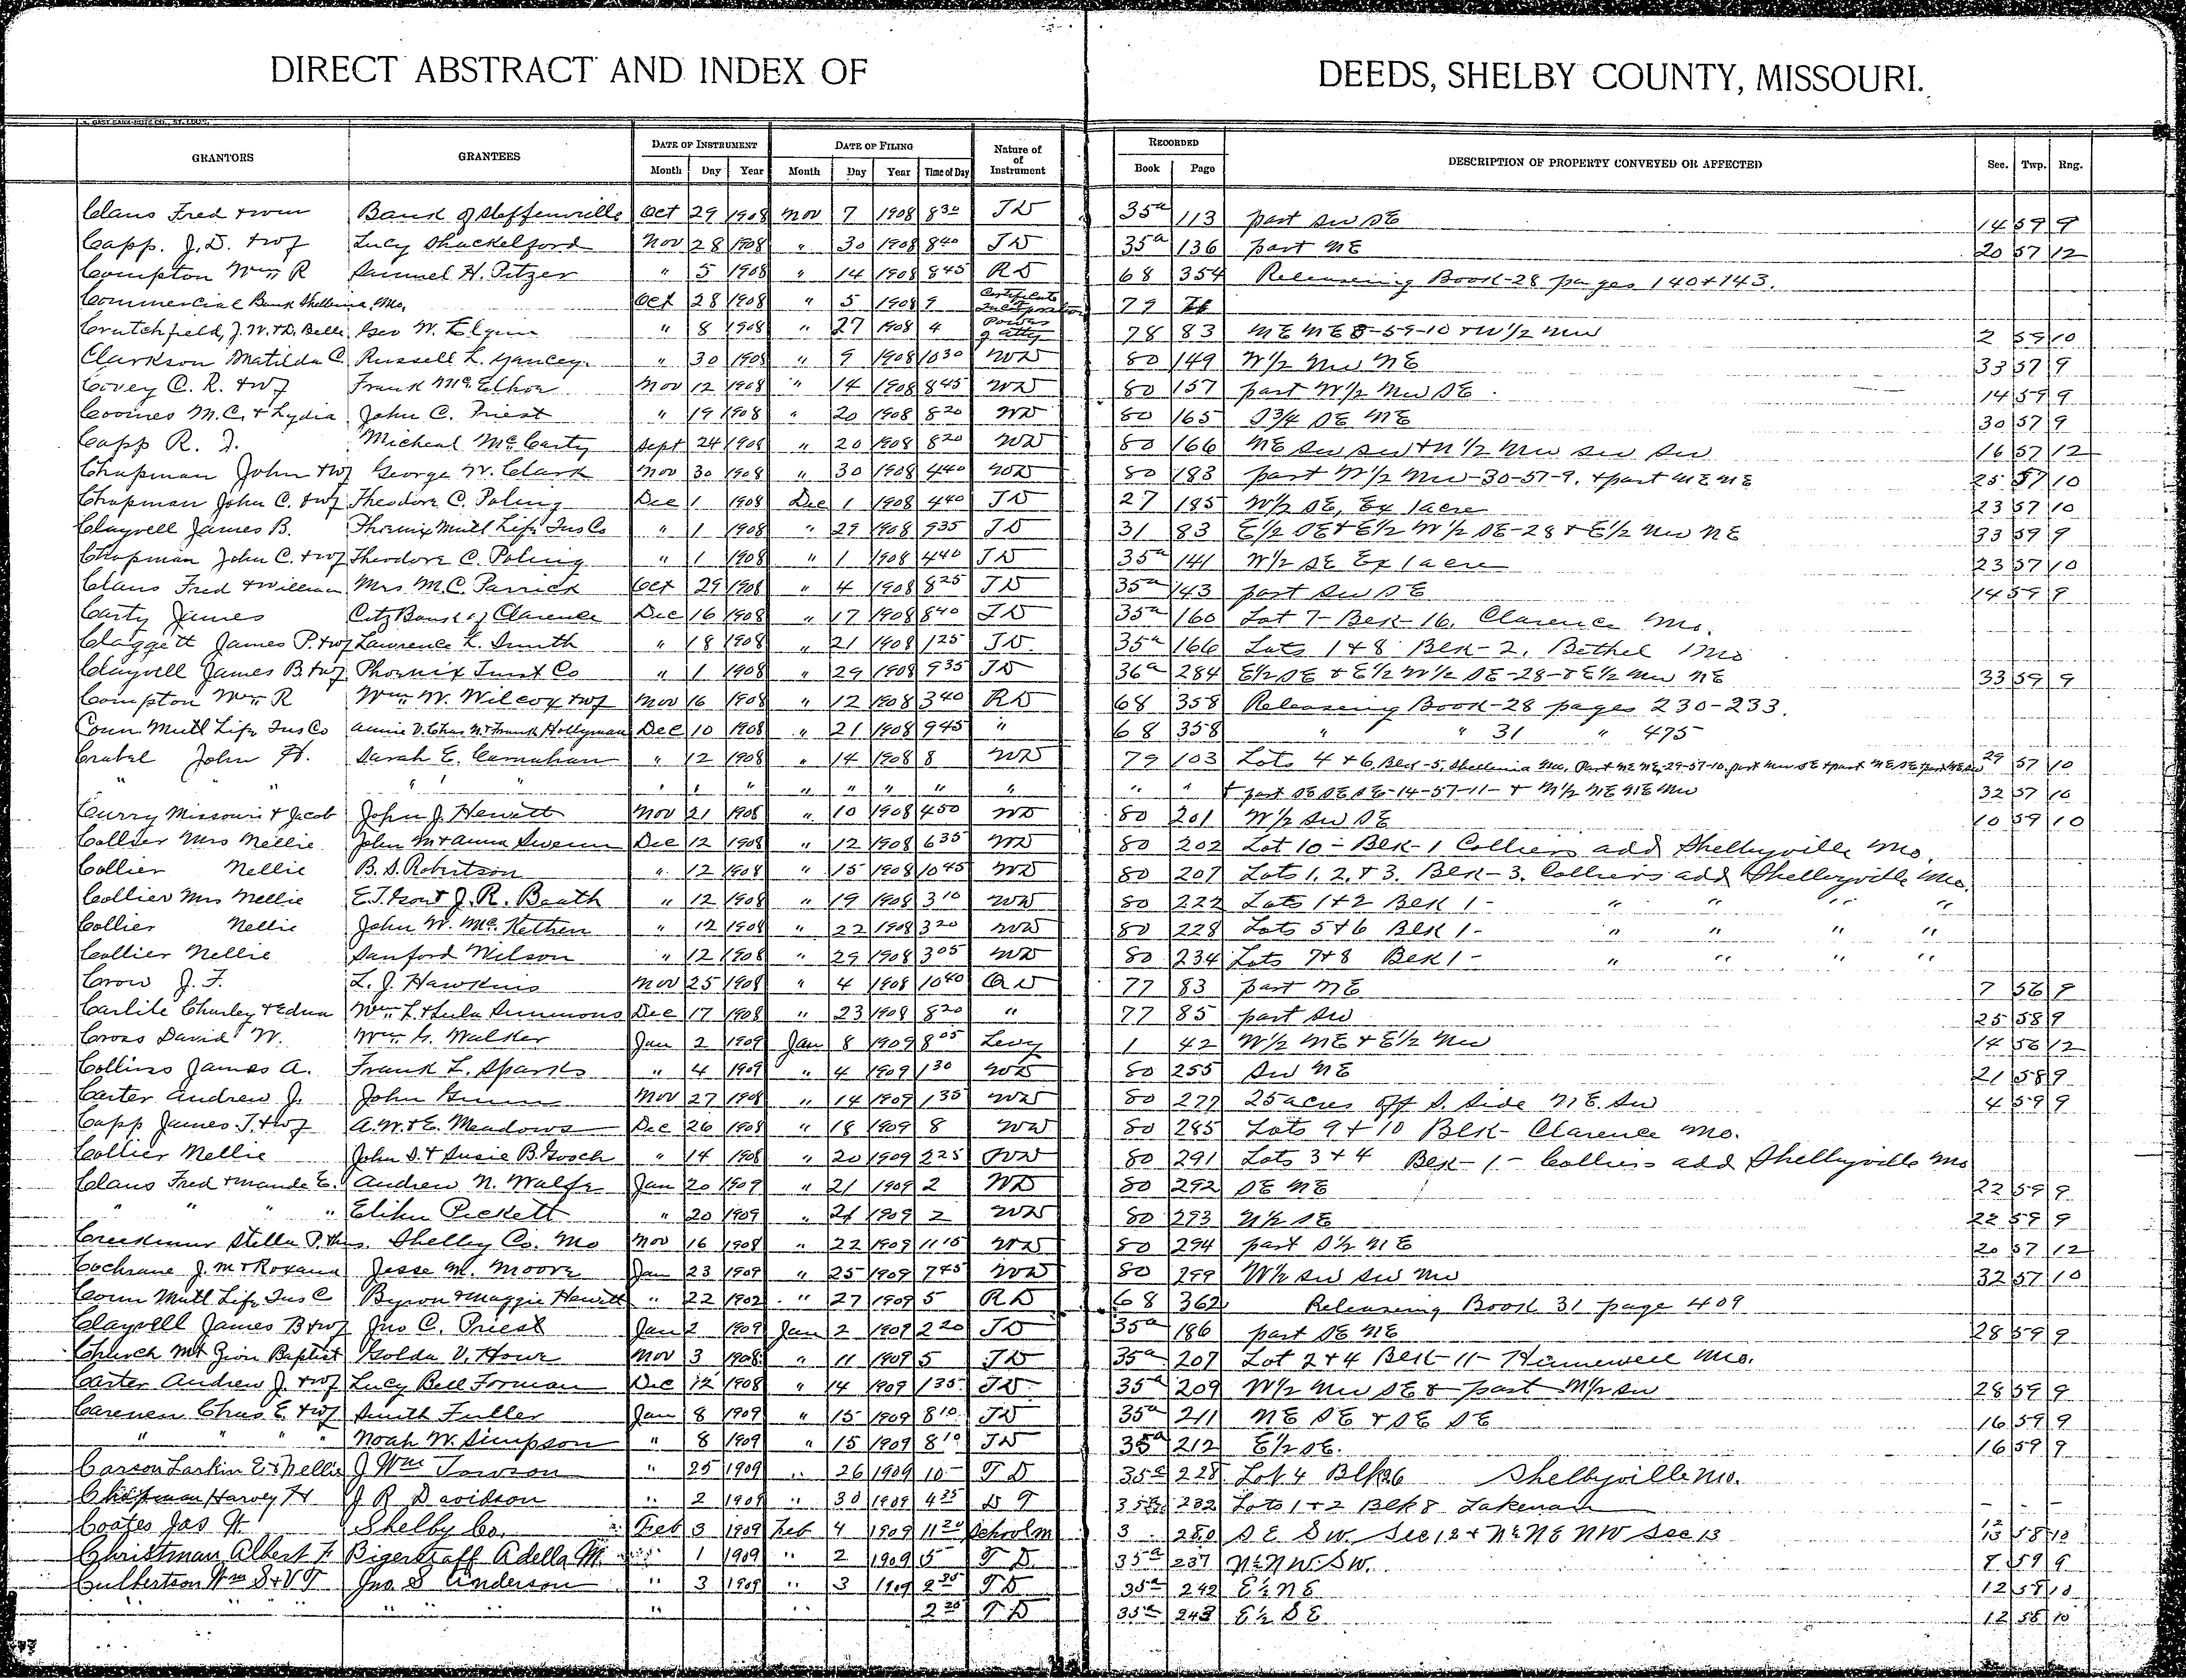 DIRECT ABSTRACT AND INDEX OF DEEDS, SHELBY COUNTY, MISSOURI.
GRANTORS GRANTEES DATE OF INSTRUMENT Month Day Year DATE OF FILING Month Day Year Time of Day Nature of of Instrument RECORDED Book Page DESCRIPTION OF PROPERTY CONVEYED OR AFFECTED Sec. Twp. Rng.
Claus Fred + wm Bank of Steffenville Oct 29 1908 Nov 7 1908 8 30 TD 35a 113 part SW SE 14 59 9
Capp. J. D. + wf Lucy Shackelford Nov 28 1908 " 30 1908 8 40 TD 35a 136 part NE 20 57 12
Compton Wm R Samuel H. Pitzer " 5 1908 " 14 1908 8 45 RD 68 354 Releasing Book-28 pages 140+143.
Commercial Bank Shelbina, Mo. Oct 28 1908 " 5 1908 9 Certificate Incorporation 79
Crutchfield, J. W. + D. Belle Geo W. Elgin " 8 1908 " 27 1908 4 Power of Atty 78 83 NE NE 8-59-10 + W 1/2 NW 2 59 10
Clarkson Matilda C. Russell L. Yancey. " 30 1908 " 9 1908 10 30 WD 80 149 W 1/2 NW NE 33 57 9
Covey C. R. + wf Frank McElhoe Nov 12 1908 " 14 1908 8 45 WD 80 157 part W 1/2 NW SE 14 59 9
Coomes M. C. + Lydia John C. Priest " 19 1908 " 20 1908 8 20 WD 80 165 S 3/4 SE NE 30 57 9
Capp R. J. Micheal McCarty Sept 24 1908 " 20 1908 8 20 WD 80 166 NE SW SW + N 1/2 NW SW SW 16 57 12
Chapman John + wf George W. Clark Nov 30 1908 " 30 1908 4 40 WD 80 183 part W 1/2 NW-30-57-9. + part NE NE 25 57 10
Chapman John C. + wf Theodore C. Poling Dec 1 1908 Dec 1 1908 4 40 TD 27 185 W 1/2 SE, Ex 1 acre 23 57 10
Clayvell James B. Phoenix Mutl Life Ins Co " 1 " 29 1908 9 35 TD 31 83 E 1/2 SE + E 1/2 W 1/2 SE-28 + E 1/2 NW NE 33 59 9
Chapman John C. + wf Theodore C. Poling " 1 1908 " 1 1908 4 40 TD 35a 141 W 1/2 SE Ex 1 acre 23 57 10
Claus Fred + William Mrs M. C. Parrick Oct 29 1908 " 4 1908 8 25 TD 35a 143 part SW SE 14 59 9
Carty James Citz Bank of Clarence Dec 16 1908 " 17 1908 8 40 TD 35a 160 Lot 7-Blk-16, Clarence Mo.
Claggett James P. + wf Lawrence L. Smith " 18 1908 " 21 1908 1 25 TD. 35a 166 Lots 1 + 8 Blk-2, Bethel Mo
Clayvell James B. + wf Phoenix Trust Co " 1 1908 " 29 1908 9 35 TD 36a 284 E 1/2 SE + E 1/2 W 1/2 SE-28-+ E 1/2 NW NE 33 59 9
Compton Wm R Wm W. Wilcox + wf Nov 16 1908 " 12 1908 3 40 RD 68 358 Releasing Book-28 pages 230-233.
Conn. Mutl Life Ins Co Annie V. Chas. N. + Frank Hollyman Dec 10 1908 " 21 1908 9 45 " 68 358 " " 31 " 475
Crabel John H. Sarah E. Carnahan " 12 1908 " 14 1908 8 WD 79 103 Lots 4 + 6, Blk-5, Shelbina Mo, Part NE NE-29-57-10, part NW SE + part NE SE 29 57 10
" " " " " " " " " " " " " " " + part SE SE SE-14-57-11-+ N 1/2 NE NE NW 32 57 10
Curry Missouri + Jacob John J. Hewitt Nov 21 1908 " 10 1908 4 50 WD 80 201 W 1/2 SW SE 10 59 10
Collier Mrs Nellie John M + Anna Swenn Dec 12 1908 " 12 1908 6 35 WD 80 202 Lot 10-Blk-1 Colliers add Shelbyville Mo.
Collier Nellie B. S. Robertson " 12 1908 " 15 1908 10 45 WD 80 207 Lots 1, 2, + 3. Blk-3. Colliers add Shelbyville Mo.
Collier Mrs Nellie E. T. Gout J. R. Baath " 12 1908 " 19 1908 3 10 WD 80 222 Lots 1+2 Blk 1- " " " "
Collier Nellie John W. McKethen " 12 1908 " 22 1908 3 20 WD 80 228 Lots 5+6 Blk 1- " " " "
Collier Nellie Sanford Wilson " 12 1908 " 29 1908 3 05 WD 80 234 Lots 7+8 Blk 1- " " " "
Crow J. F. L. J. Hawkins Nov 25 1908 " 4 1908 10 40 QD 77 83 part NE 7 56 9
Carlile Charley + Edna Wm L + Lula Simmons Dec 17 1908 " 23 1908 8 20 " 77 85 part SW 25 58 9
Cross David W. Wm G. Walker Jan 2 1909 Jan 8 1909 8 05 Levy 1 42 W 1/2 NE + E 1/2 NW 14 56 12
Collins James A. Frank L. Sparks " 4 1909 " 4 1909 1 30 WD 80 255 SW NE 21 58 9
Carter Andrew J. John Gunn Nov 27 1908 " 14 1909 1 35 WD 80 277 25 acres off S. Side NE. SW 4 59 9
Capp James T. + wf A. W. + E. Meadows Dec 26 1908 " 18 1909 8 WD 80 285 Lots 9 + 10 Blk- Clarence Mo.
Collier Nellie John S. + Susie B. Gooch " 14 1908 " 20 1909 2 25 WD 80 291 Lots 3 + 4 Blk-1-Colliers add Shelbyville Mo
Claus Fred + Maude E. Andrew N. Walfe Jan 20 1909 " 21 1909 2 WD 80 292 SE NE 22 59 9
" " " " Elihu Pickett " 20 1909 " 21 1909 2 WD 80 293 N 1/2 SE 22 59 9
Stella P. Shelby Co. Mo Nov 16 1908 " 22 1909 11 15 WD 80 294 part S 1/2 NE 20 57 12
Cochrane J. M + Roxana Jesse M. Moore Jan 23 1909 " 25 1909 7 45 WD 80 299 W 1/2 SW SW NW 32 57 10
Conn Mutl Life Ins C Byron + Maggie Hewitt " 22 1902 " 27 1909 5 RD 68 362 Releasing Book 31 page 409
Clayvell James B + wf Jno C. Priest Jan 2 1909 Jan 2 1909 2 20 TD 35a 186 part SE NE 28 59 9
Church Mt Zion Baptist Golda V. Howe Nov 3 1908 " 11 1909 5 TD 35a 207 Lot 2+4 Blk-11-Hunnewell Mo.
Carter Andrew J. + wf Lucy Bell Forman Dec 12 1908 " 14 1909 1 35 TD 35a 209 W 1/2 NW SE + part N 1/2 SW 28 59 9
Carenen Chas E. + wf Smith Fuller Jan 8 1909 " 15 1909 8 10 TD 35a 211 NE SE + SE SE 16 59 9
" " " " Noah W. Simpson " 8 1909 " 15 1909 8 10 TD 35a 212 E 1/2 SE. 16 59 9
Carson Larkin E + Nellie J Wm Towson " 25 1909 " 26 1909 10 TD 35a 228 Lot 4 Blk 26 Shelbyville Mo.
Chapman Harvey H J R Davidson " 2 1909 " 30 1909 4 35 DT 232 Lots 1+2 Blk 8 Lakenan - - -
Coates Jas H. Shelby Co. Feb 3 1909 Feb 4 1909 11 20 School m 3 280 SE SW. Sec 12 + N 1/2 NE NW Sec 13 12 13 58 10
Christman Albert F. Bigerstaff Adella M. " 1 1909 " 2 1909 5 TD 35a 237 N 1/2 NW SW. 8 59 9
Culbertson Wm S + V T Jno S Anderson " 3 1909 " 3 1909 2 25 TD 35a 242 E 1/2 NE 12 58 10
" " " " " " " " " 2 25 TD 35a 243 E 1/2 SE 12 58 10